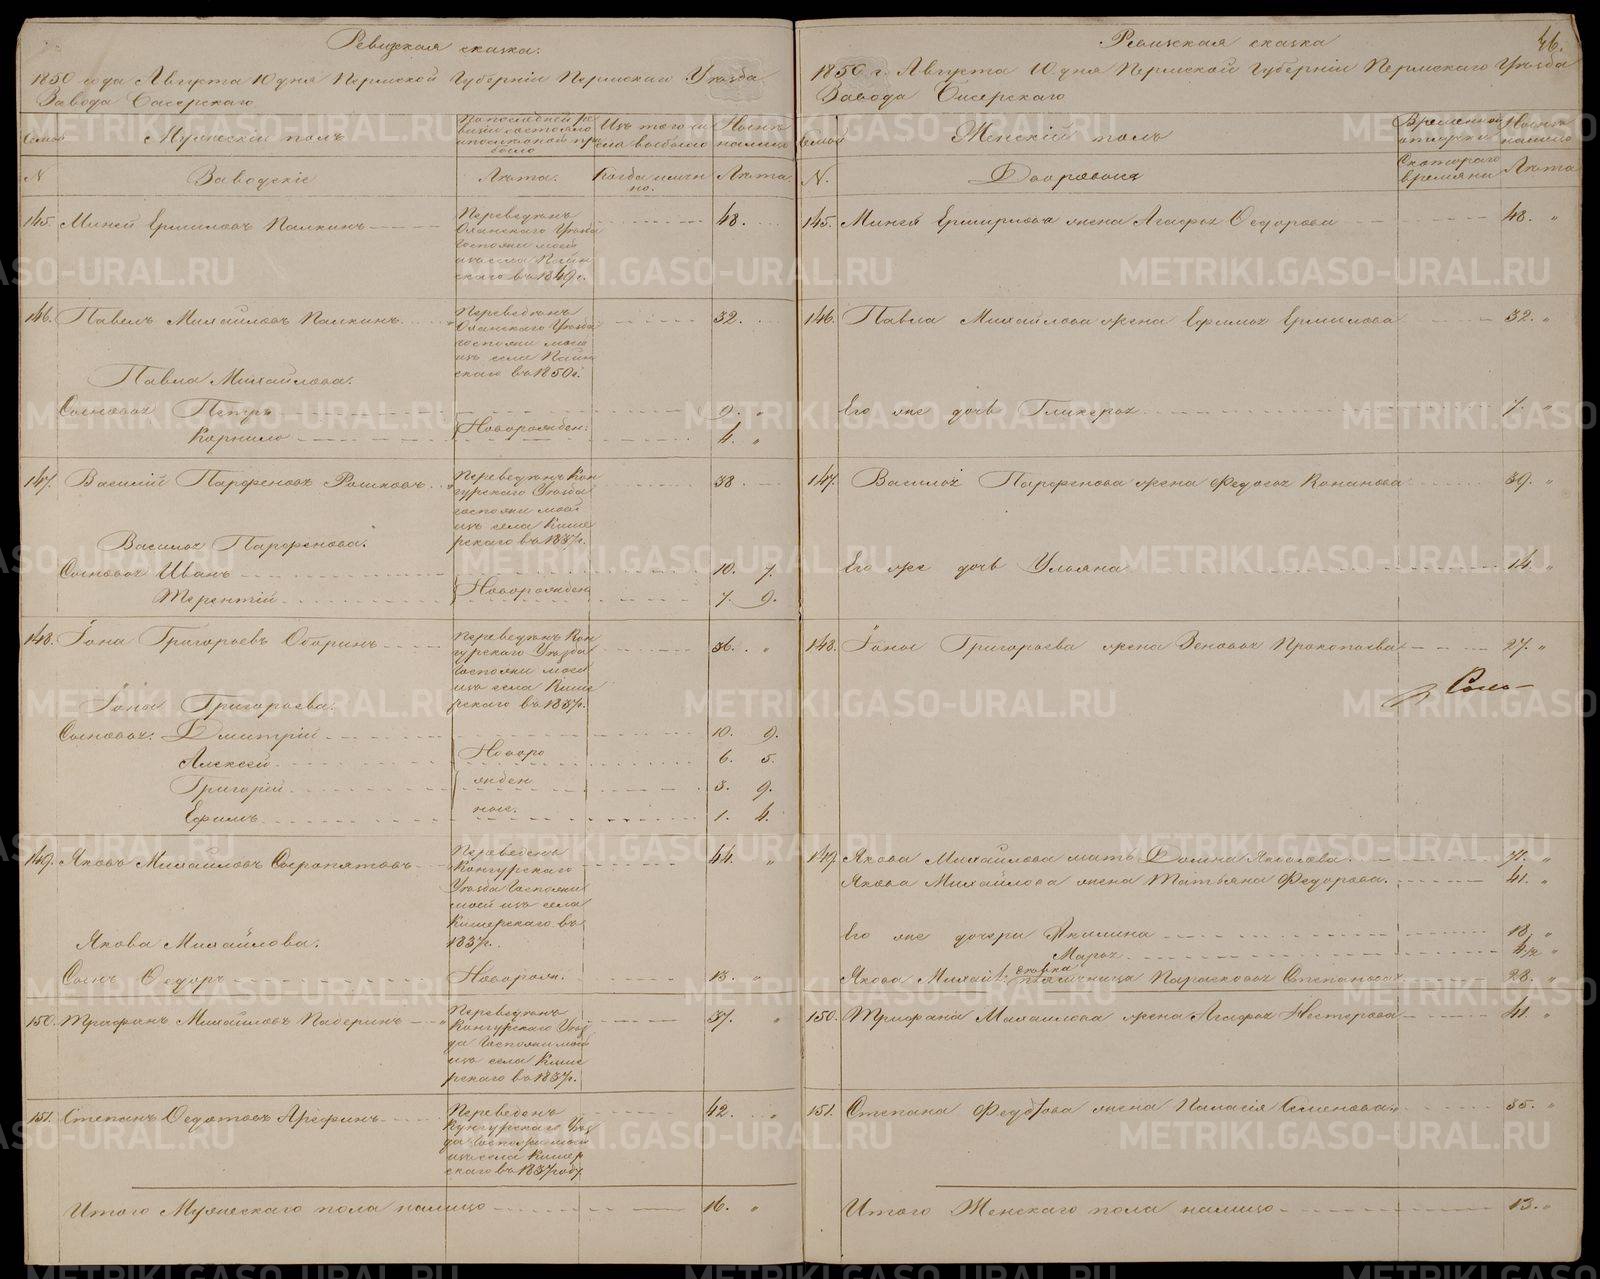 Ревизская сказка.
1850 года Августа 10 дня Пермской Губерніи Пермскаго Уѣзда
Завода Сысерскаго
Мужескій полъ
По последней ревизіи состояло и после оной прибыло
Изъ того числа выбыло
Ныне налицо
N
Заводскіе
Лѣта.
Когда именно.
Лѣта.
145. Миней Ермиловъ Палкинъ
Переведенъ Оханскаго Уѣзда Госпожи моей изъ села скаго въ 1849 г.
48.
146. Павелъ Михайловъ Палкинъ
Переведенъ Оханскаго Уѣзда Госпожи моей изъ села скаго въ 1850 г.
32.
Павла Михайлова.
Сыновья Петръ
9. "
Корнило
Новорожден:
4. "
147. Василій Парфеновъ Рошковъ
Переведенъ Кунгурскаго Уѣзда Госпожи моей изъ села Кишерскаго въ 1837 г.
38.
Василья Парфенова.
Сыновья Иванъ
10. 7.
Терентій
Новорожден
7. 9.
148. Іона Григорьевъ Оборинъ
Переведенъ Кунгурскаго Уѣзда Госпожи моей изъ села Кишерскаго въ 1837 г.
36. "
Іоны Григорьева.
Сыновья: Дмитрій
10. 9.
Алексей
6. 5.
Григорій
3. 9.
Ефимъ
1. 4.
Новорожденные.
149. Яковъ Михайловъ Сыропятовъ
Переведенъ Кунгурскаго Уѣзда Госпожи моей изъ села Кишерскаго въ 1837 г.
44. "
Якова Михайлова.
Сынъ Федоръ
Новорож.
13. "
150. Трифанъ Михайловъ Паберинъ
Переведенъ Кунгурскаго Уѣзда Госпожи моей изъ села Кишерскаго въ 1837 г.
37. "
151. Степанъ Федотовъ Арефинъ
Переведенъ Кунгурскаго Уѣзда Госпожи моей изъ села Кишерскаго въ 1837 году
42. "
Итого Мужескаго пола налицо
16. "
Ревизская сказка
46.
1850 г. Августа 10 дня Пермской Губерніи Пермскаго Уѣзда
Завода Сысерскаго
Женскій полъ
Временной отлучки
Ныне налицо
N.
Дворовыя
С котораго времяни
Лѣта
145. Минея Ермилова жена Агафья Федорова 48. "
146. Павла Михайлова жена Ефимья Ермилова 32. "
Его же дочь Гликерья 7. "
147. Василья Парфенова жена Федосья Конанова 39. "
Его же дочь Ульяна 14. "
148. Іоны Григорьева жена Зеновья Прокопьева 27. "
149. Якова Михайлова мать Домна 71. "
Якова Михайлова жена Татьяна Федорова. 41. "
Его же дочери Акилина 18. "
Марья 4 1/2 "
Якова Михайл: Парасковья Степанова 28. "
150. Трифана Михайлова жена Агафья Нестерова 41. "
151. Степана Федотова жена Паласія Семенова 35. "
Итого Женскаго пола налицо 13. "
METRIKI.GASO-URAL.RU